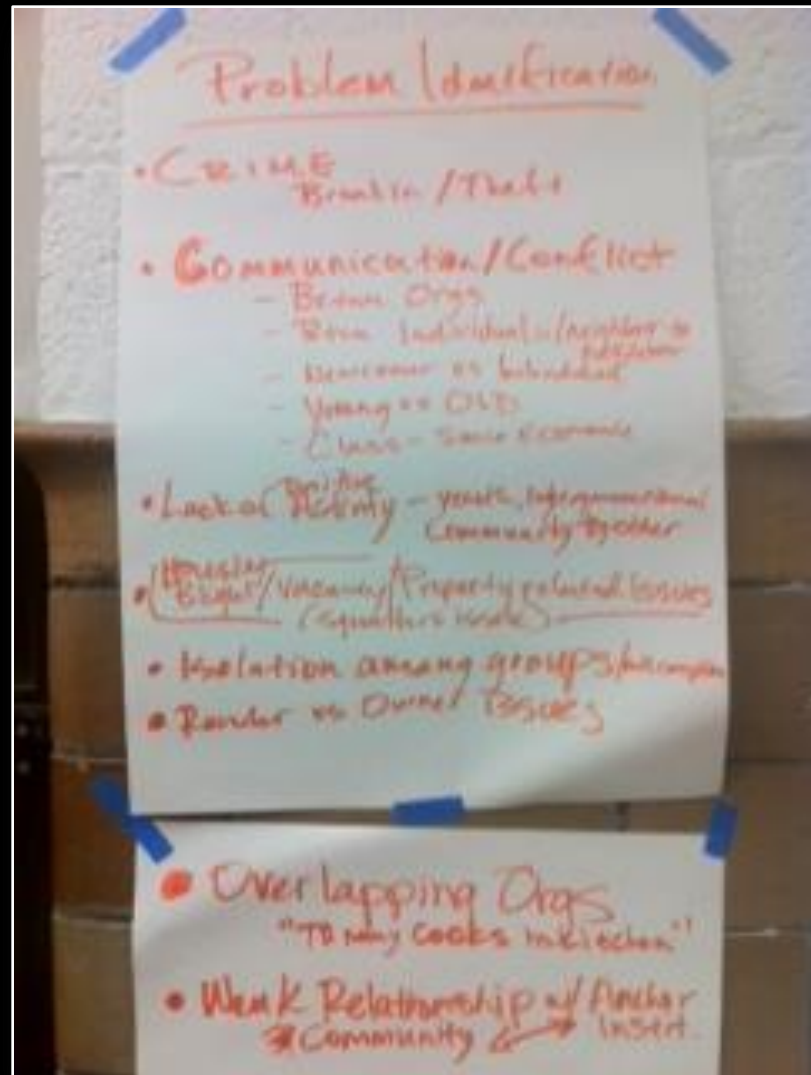 Problem Identification
• CRIME
Breakin / Theft
• Communication/Conflict
- Betwn Orgs
- Betwn Individuals/neighbor to
neighbor
- Newcomer vs
- Young vs OLD
- Class - Socio Economic
positive
• Lack of Activity - youth, intergenerational
Community together
Housing
• Blight/Vacancy/Property related issues
(squatters issue)
• Isolation among groups/
• Renter vs Owner Issues
• Overlapping Orgs
"TO many Cooks in Kitchen"
• Weak Relationship w/ Anchor
Community Instit.